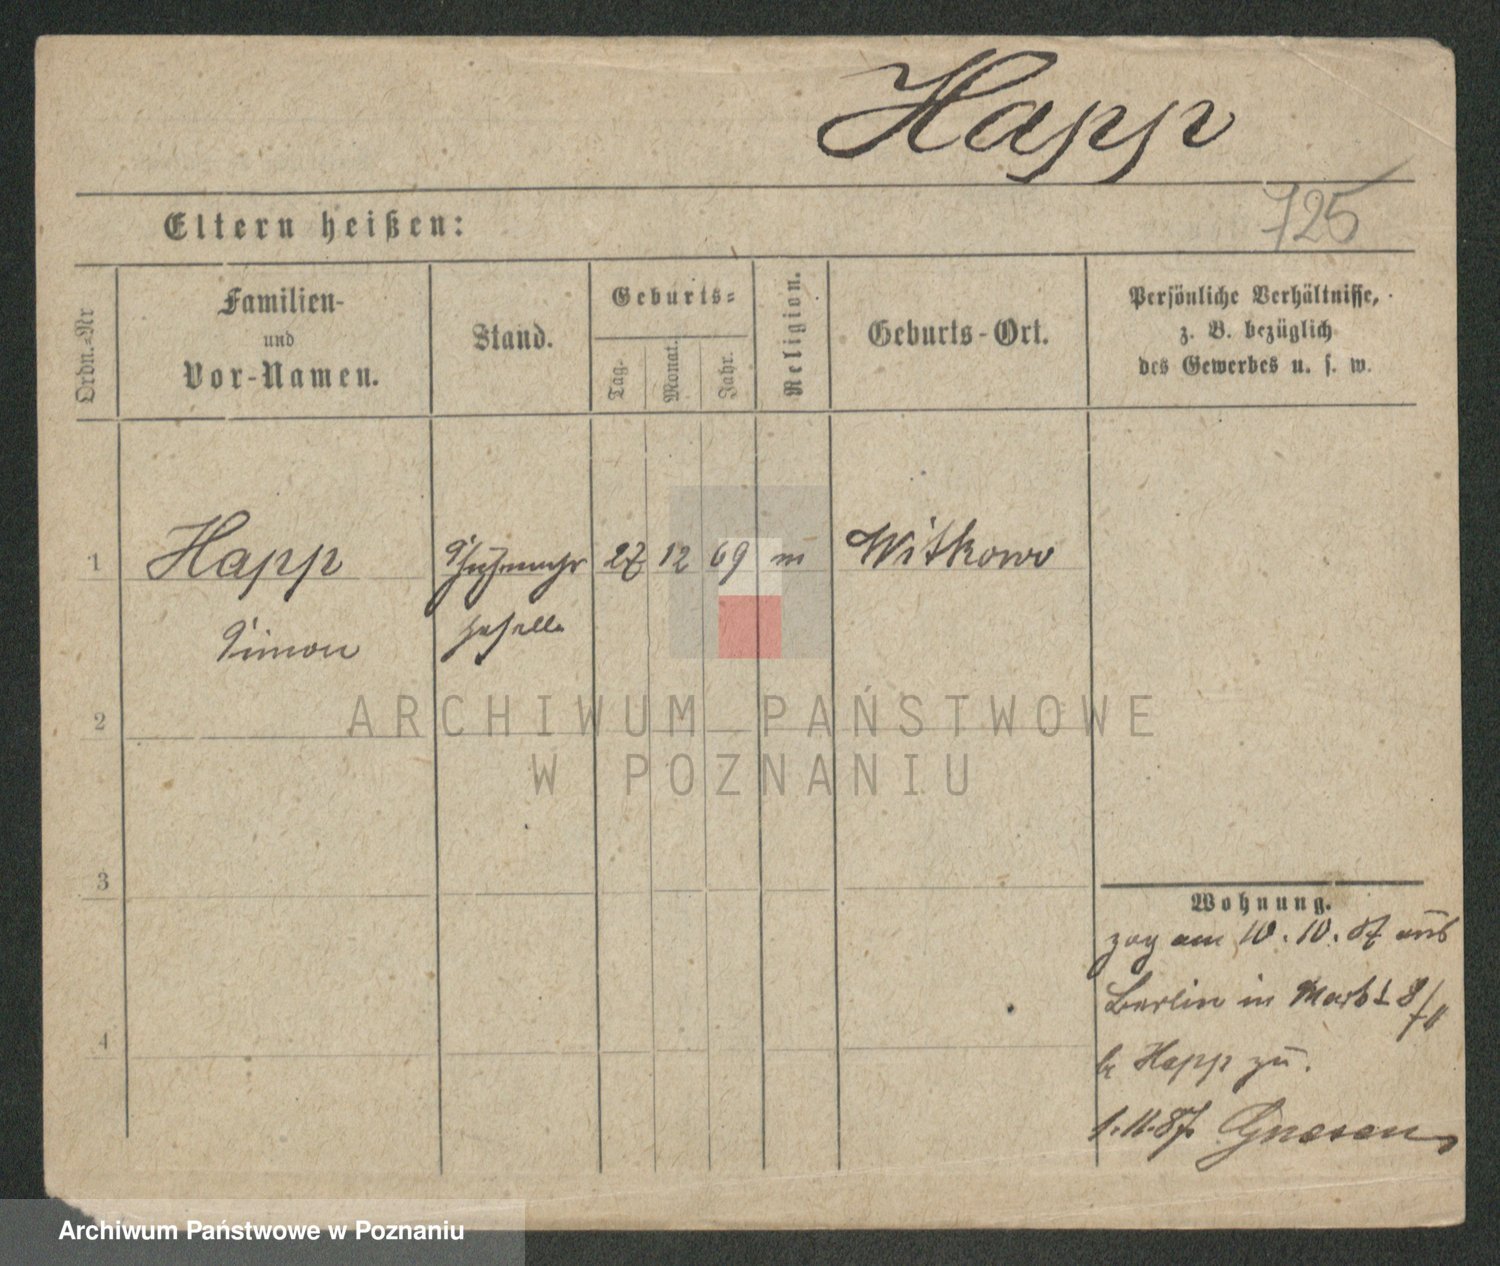 Happ
725
Eltern heißen:
Ordn.-Nr
Familien-
und
Vor-Namen.
Stand.
Geburts-
Tag.
Monat.
Jahr.
Religion.
Geburts-Ort.
Persönliche Verhältnisse,
z. B. bezüglich
des Gewerbes u. s. w.
1 Happ 27 12 69 m Witkowo
Simon geselle
2
ARCHIWUM PAŃSTWOWE
W POZNANIU
3
Wohnung.
zog am 10.10.87 aus
Berlin in 8/
4
b Happ zu.
1.11.87. Gnesen
Archiwum Państwowe w Poznaniu